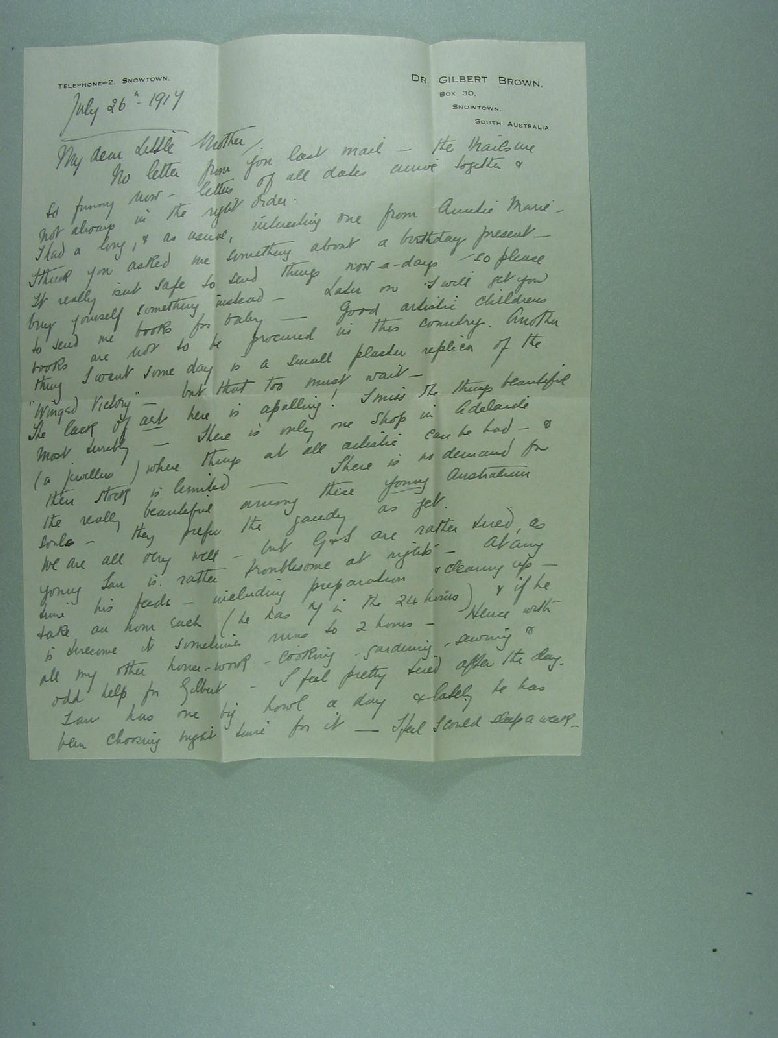 TELEPHONE—2, SNOWTOWN.
DR. GILBERT BROWN.
BOX 30,
SNOWTOWN.
SOUTH AUSTRALIA
July 26th - 1917
My dear Little Mother
No letter from you last mail — the mails are
so funny now — letters of all dates arrive together &
not always in the right order.
I had a long, & as usual, interesting one from Auntie Marie —
I think you asked me something about a birthday present —
It really isn't safe to send things now-a-days — so please
buy yourself something instead — Later on I will get you
to send me books for baby — Good artistic childrens
books are not to be procured in this country. Another
thing I want some day is a small plaster replica of the
"Winged Victory" — but that too must wait —
The lack of art here is apalling! I miss the things beautiful
most surely — There is only one shop in Adelaide
(a jewellers) where things at all artistic can be had — &
their stock is limited — There is no demand for
the really beautiful among these young Australian
souls — they prefer the gaudy as yet.
We are all very well — but G & I are rather tired, as
young Ian is rather troublesome at nights — At any
time his feeds — including preparation & clearing up —
take an hour each (he has 7 in the 24 hours) & if he
is tiresome it sometimes runs to 2 hours — Hence with
all my other house-work — cooking — gardening — sewing &
odd help for Gilbert — I feel pretty tired after the day.
Ian has one big howl a day & lately he has
been choosing night time for it — I feel I could sleep a week —